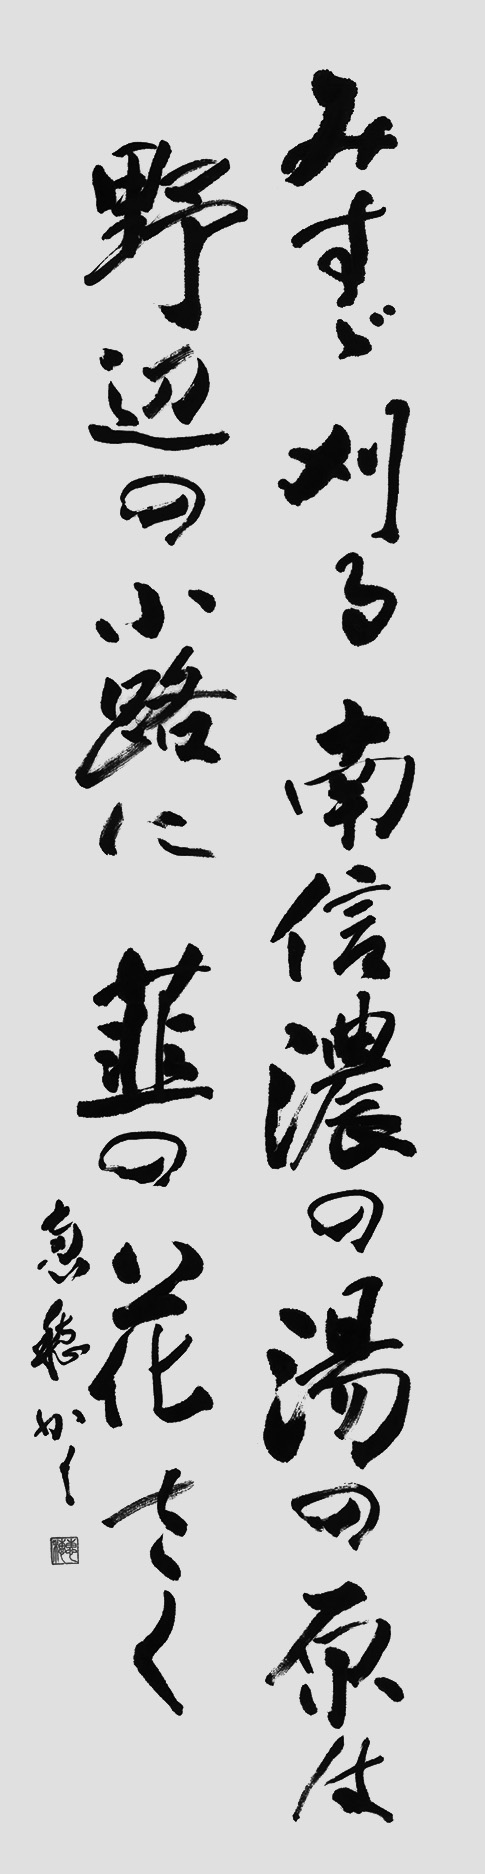 みすゞ刈る南信濃の湯の原は
野辺の小路に韮の花さく
恵穂かく